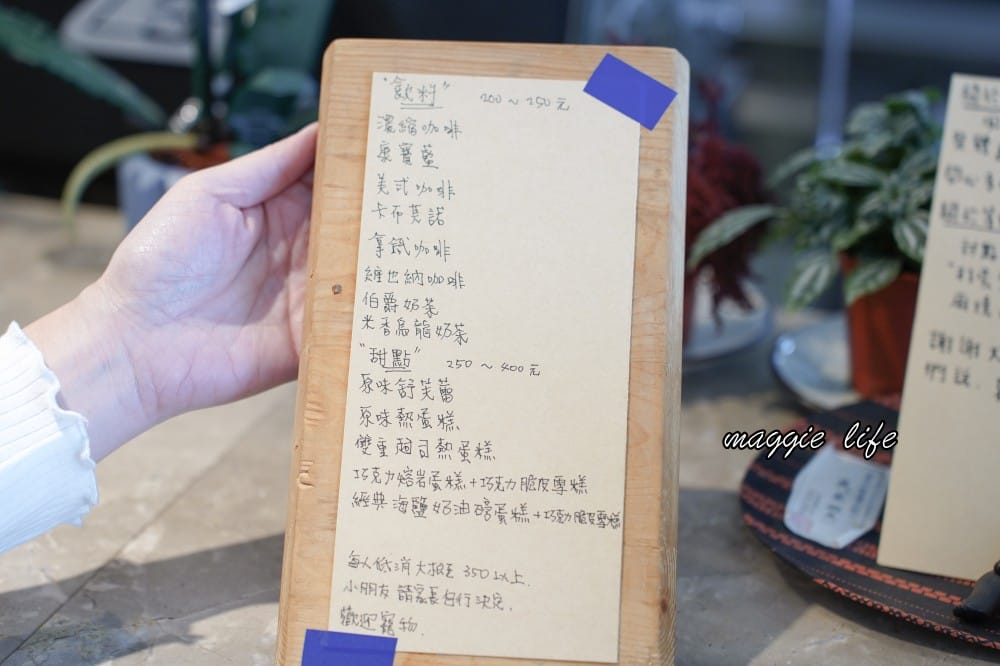 "飲料" 200~250元
濃縮咖啡
康寶藍
美式咖啡
卡布其諾
拿鐵咖啡
維也納咖啡
伯爵奶茶
米香烏龍奶茶
"甜點" 250~400元
原味舒芙蕾
原味熱蛋糕
雙重起司熱蛋糕
巧克力熔岩蛋糕+巧克力脆皮雪糕
經典海鹽奶油磅蛋糕+巧克力脆皮雪糕
每人低消大概是350以上.
小朋友請家長自行決定.
歡迎寵物.
maggie life
謝謝
們